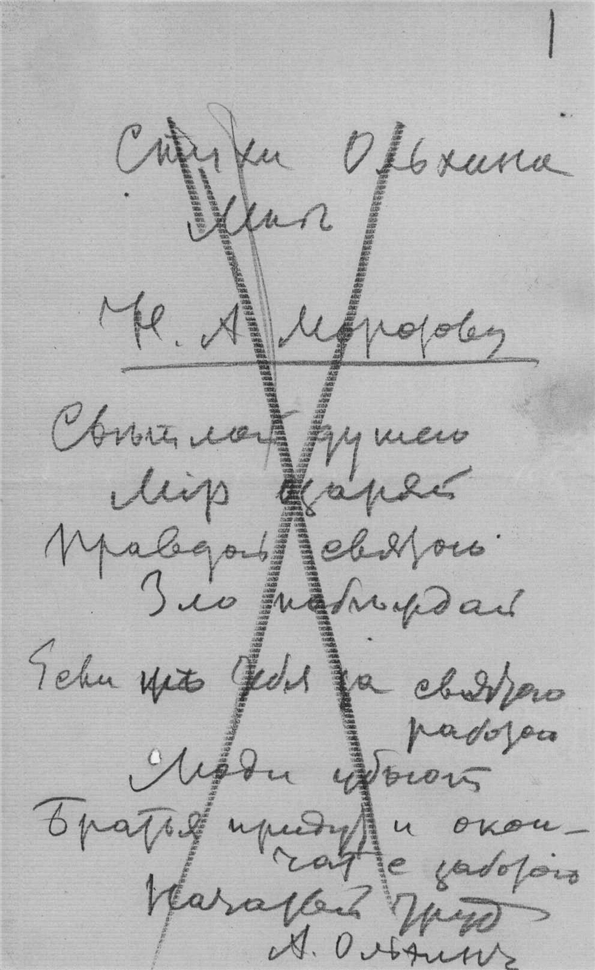 1
Стихи Ольхина
Мнѣ
Н. А Морозову
Свѣтлой душею
Мір озаряй
Правдой святою
Зло побѣждай
Если тебя за святую
работой
Люди убьют
Братья придут и окон-
чат с заботою
Начатый труд
А. Ольхинъ